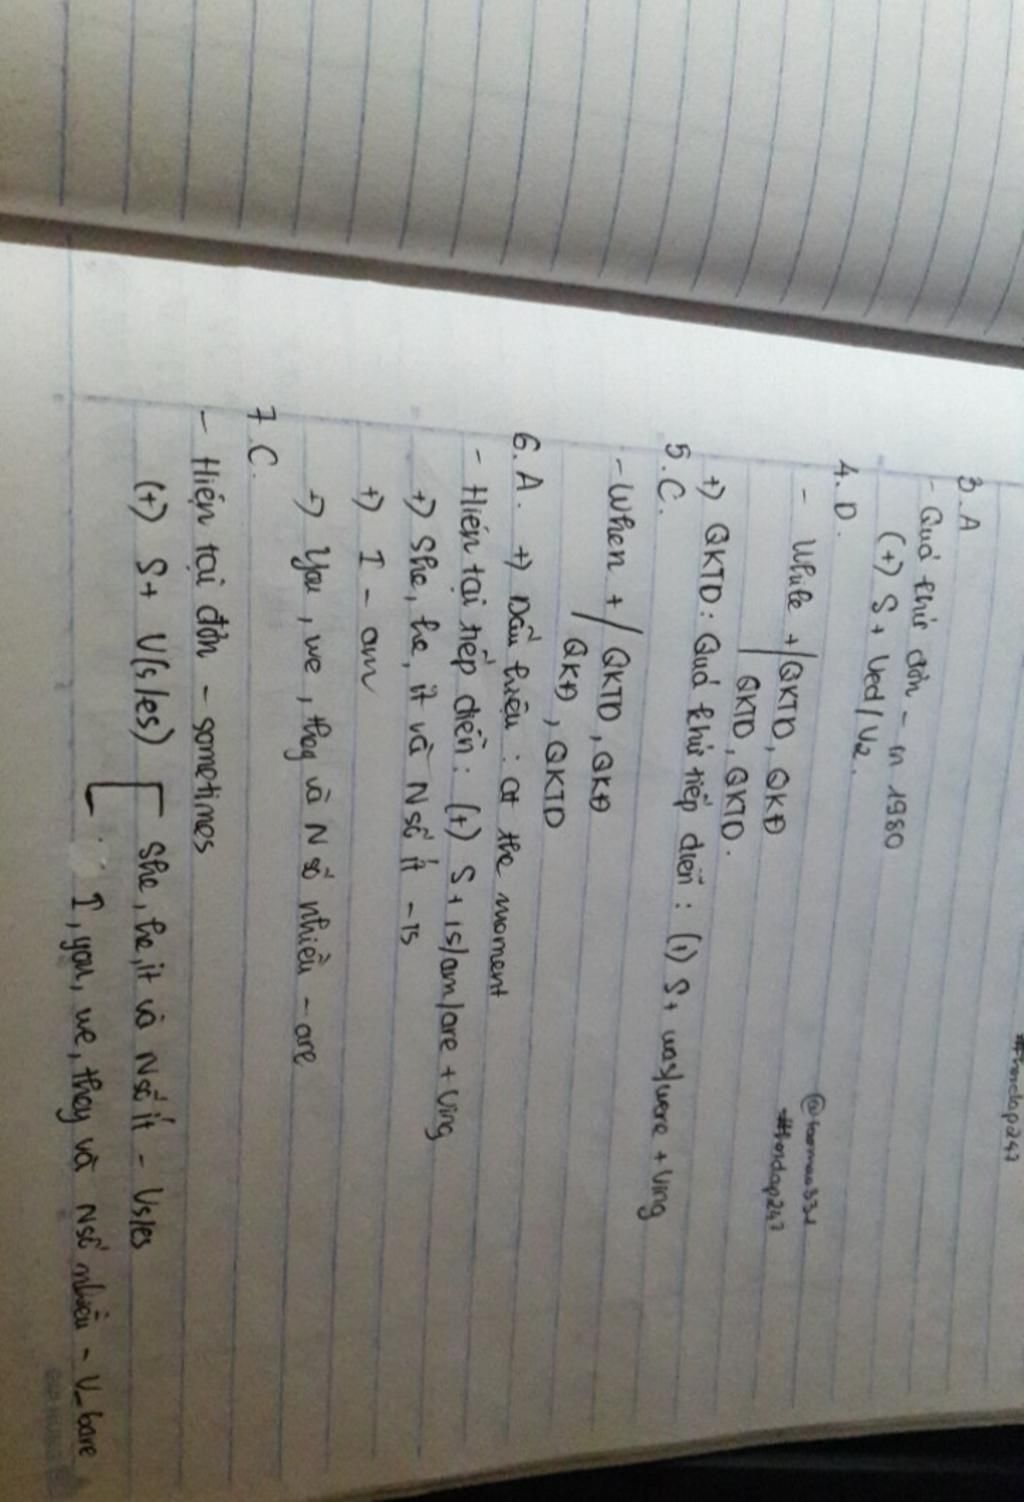 #hoidap247
3.A
- Quá khứ đơn - in 1980
(+) S + Ved/V2.
4.D.
- While + QKTD, QKĐ
QKTD, QKTD.
+) QKTD: Quá khứ tiếp diễn: (+) S+ was/were + Ving
5.C.
- When + QKTD, QKĐ
QKĐ, QKTD
6.A. +) Dấu hiệu: at the moment
- Hiện tại tiếp diễn: (+) S + is/am/are + Ving
+) She, he, it và N số ít - is
+) I - am
+) You, we, they và N số nhiều - are
7.C.
- Hiện tại đơn - sometimes
(+) S + V(s/es) She, he, it và N số ít - Vs/es
I, you, we, they và N số nhiều - V_bare
#hoidap247